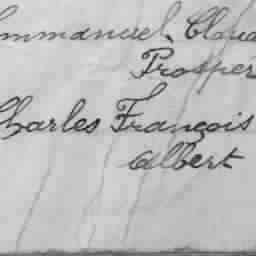 Emmanuel Claud
Prosper
Charles François
Albert